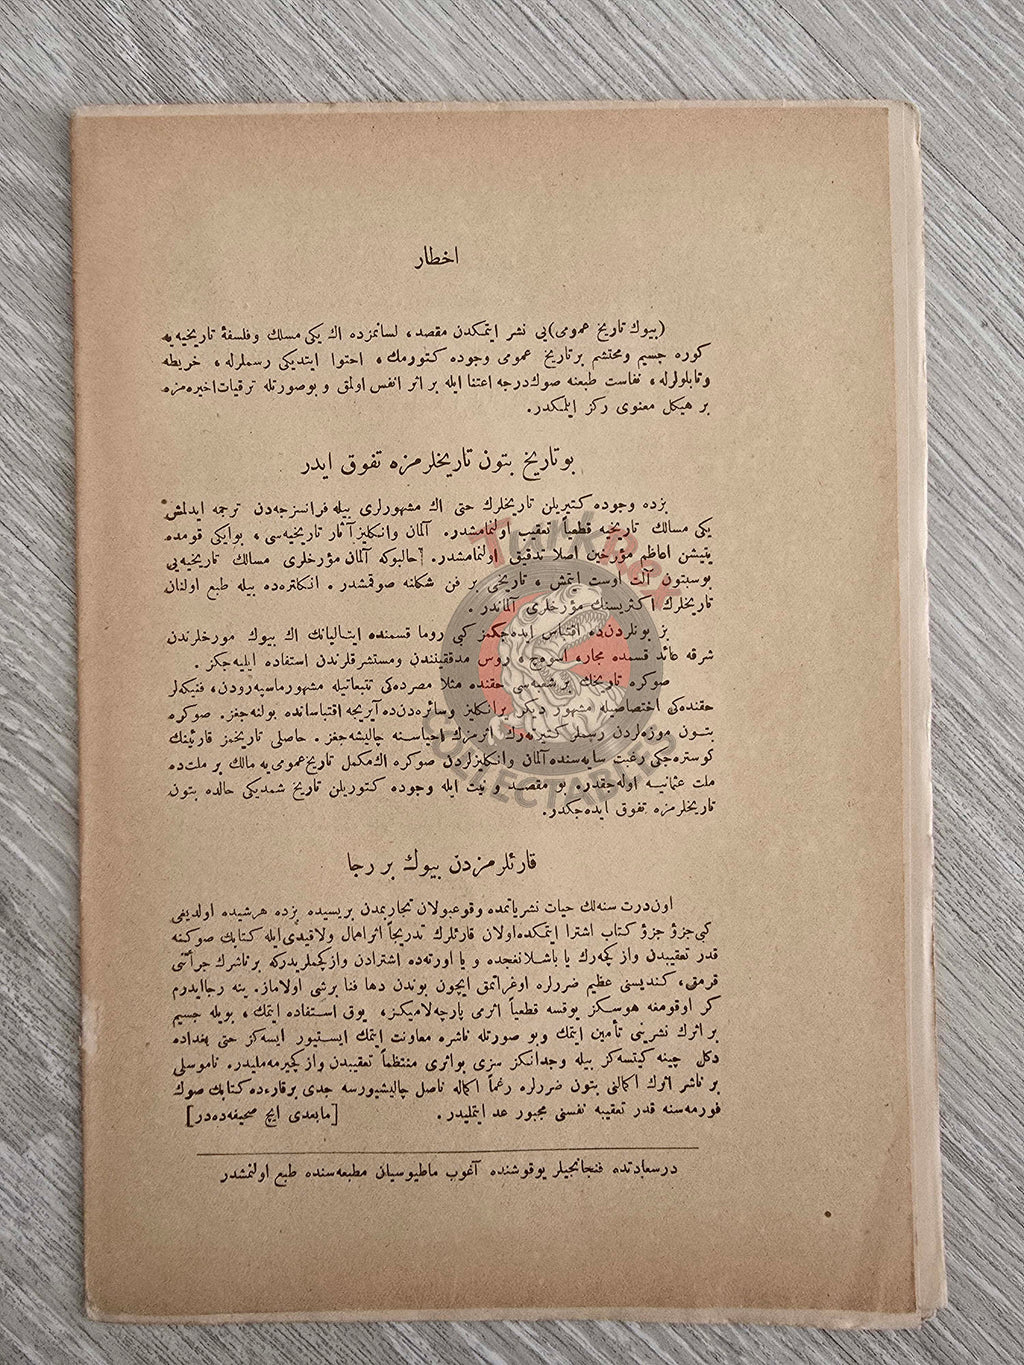 اخطار
(بيوك تاريخ عمومى)يى نشر ايتمكدن مقصد، لسانمزده اك يكى مسلك وفلسفهٔ تاريخيه‌يه
كوره جسيم ومحتشم برتاريخ عمومى وجوده كتورمك، احتوا ايتديكى رسملرله، خريطه
وتابلولرله، نفاست طبعنه صوك‌درجه اعتنا ايله بر اثر انفس اولمق و بوصورتله ترقيات‌اخيره‌مزه
بر هيكل معنوى ركز ايلمكدر.
بوتاريخ بتون تاريخلرمزه تفوق ايدر
بزده وجوده كتيريلن تاريخلرك حتى اك مشهورلرى بيله فرانسزجه‌دن ترجمه ايدلمش
يكى مسالك تاريخيه قطعياً تعقيب اولنمامشدر. آلمان وانكليز آثار تاريخيه‌سى، بوايكى قومده
يتيشن اعاظم مؤرخين اصلا تدقيق اولنمامشدر. حالبوكه آلمان مؤرخلرى مسالك تاريخيه‌يى
بوسبتون آلت اوست ايتمش، تاريخى بر فن شكلنه صوقمشدر. انكلتره‌ده بيله طبع اولنان
تاريخلرك اكثريسنك مؤرخلرى آلماندر.
بز بونلردن‌ده اقتباس ايده‌جكمز كبى روما قسمنده ايتاليانك اك بيوك مورخلرندن
شرقه عائد قسمده مجار، اسوه‌ج، روس مدققيندن ومستشرقلرندن استفاده ايليه‌جكز.
صوكره تاريخك بر شعبه‌سى حقنده مثلا مصرده‌كى تتبعاتيله مشهور ماسپه‌رودن، فنيكه‌لر
حقنده‌كى اختصاصيله مشهور ديكر برانكليز وسائره‌دن‌ده آيريجه اقتباساتده بولنه‌جغز. صوكره
بتون موزه‌لردن رسملر كتيره‌رك اثرمزك احياسنه چاليشه‌جغز. حاصلى تاريخمز قارئينك
كوستره‌جكى رغبت سايه‌سنده آلمان وانكليزلردن صوكره اك‌مكمل تاريخ‌عمومى‌يه مالك بر ملت‌ده
ملت عثمانيه اوله‌جقدر. بو مقصد و نيت ايله وجوده كتوريلن تاريخ شمديكى حالده بتون
تاريخلرمزه تفوق ايده‌جكدر.
قارئلرمزدن بيوك بر رجا
اون‌درت سنه‌لك حيات نشرياتمده وقوعبولان تجاربمدن بريسيده بزده هرشيده اولديغى
كبى جزؤ جزؤ كتاب اشترا ايتمكده‌اولان قارئلرك تدريجاً اثراهمال ولاقيدى‌ايله كتابك صوكنه
قدر تعقيبدن واز كچه‌رك يا باشلانغجده و يا اورته‌ده اشترادن وازكچملريدركه بر ناشرك جرأتنى
قرمق، كنديسنى عظيم ضررلره اوغراتمق ايچون بوندن دها فنا برشى اولاماز. ينه رجاايدرم
كر اوقومغه هوسكز يوقسه قطعياً اثرمى پارچه‌لاميكز، يوق استفاده ايتمك، بويله جسيم
بر اثرك نشرينى تأمين ايتمك وبو صورتله ناشره معاونت ايتمك ايستيور ايسه‌كز حتى بغداده
دكل چينه كيتسه‌كز بيله وجدانكز سزى بواثرى منتظماً تعقيبدن واز كچيرمه‌مليدر. ناموسلى
بر ناشر اثرك اكمالنى بتون ضررلره رغماً اكماله ناصل چاليشيورسه جدى برقارءده كتابك صوك
فورمه‌سنه قدر تعقيبه نفسنى مجبور عد ايتمليدر. [مابعدى ايچ صحيفه‌ده‌در]
درسعادتده فنجانجيلر يوقوشنده آغوب ماطيوسيان مطبعه‌سنده طبع اولنمشدر
Turk
Rex
COLLECTABLES